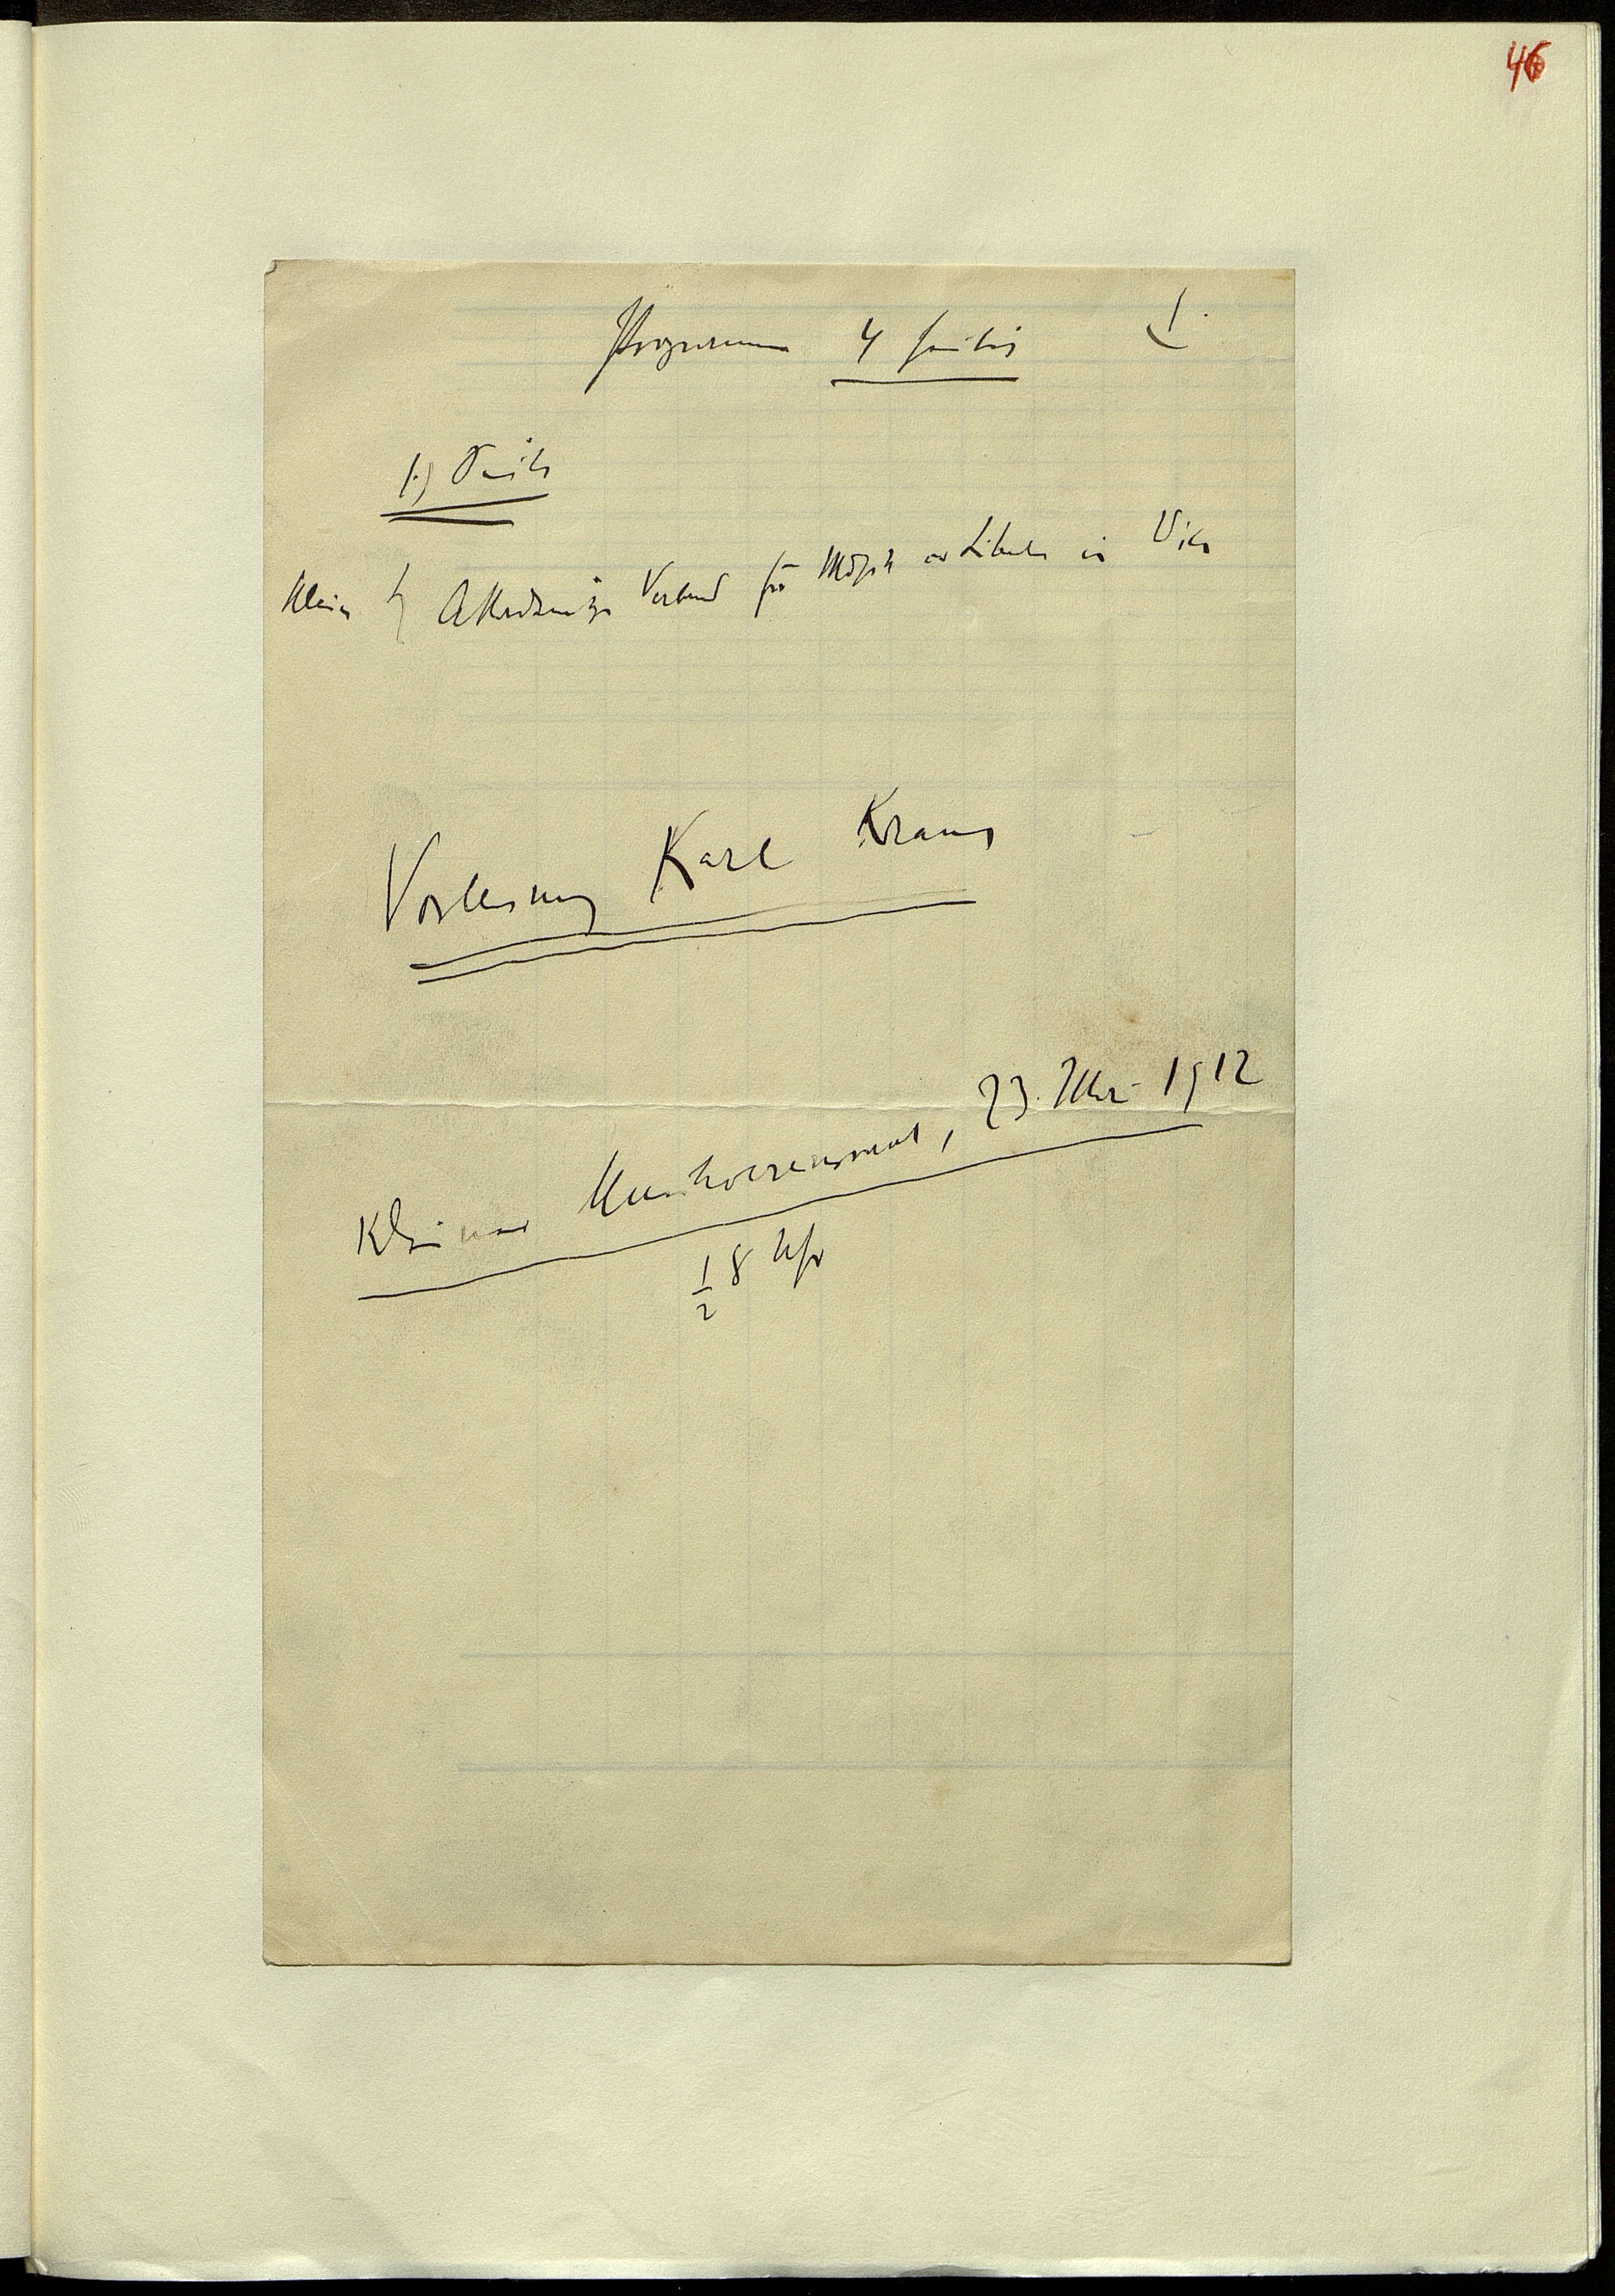 46
Programm 4 seitig 1.
1.) Seite
Klein Akademischer Verband für Musik u Literatur in Wien
Vorlesung Karl Kraus
Kleiner Musikvereinssaal, 23. Mai 1912
½ 8 Uhr